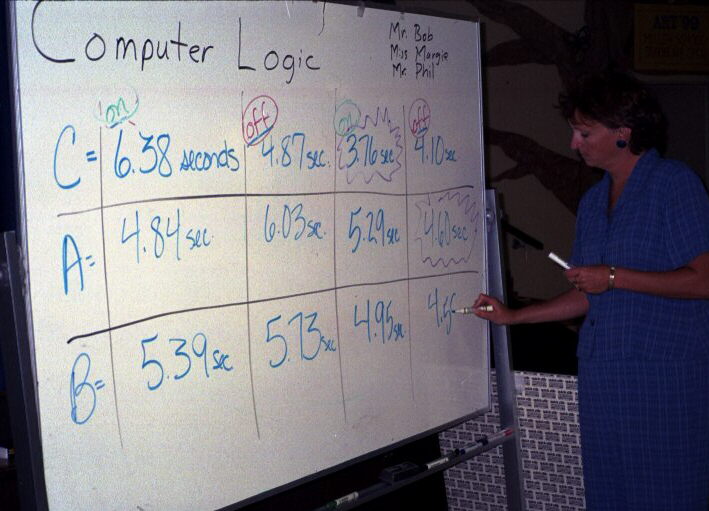 Computer Logic
Mr. Bob
Miss Margie
Mr. Phil
on off on off
C= 6.38 seconds 4.87 sec. 3.76 sec 4.10 sec
A= 4.84 sec 6.03 sec. 5.29 sec 4.60 sec
B= 5.39 sec 5.73 sec 4.95 sec
ART '99